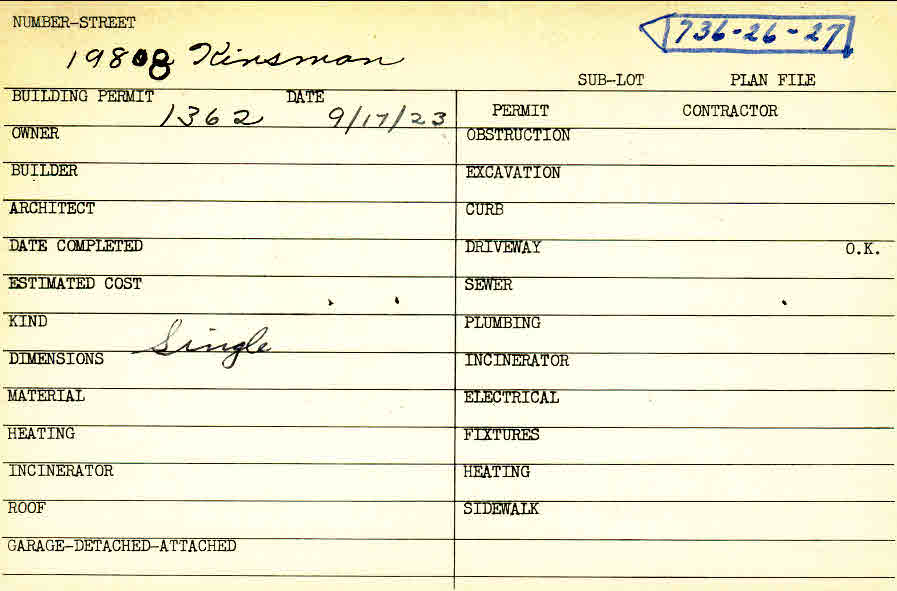 NUMBER-STREET
736-26-27
19808 Kinsman
SUB-LOT PLAN FILE
BUILDING PERMIT DATE
1362 9/17/23
PERMIT CONTRACTOR
OWNER
OBSTRUCTION
BUILDER
EXCAVATION
ARCHITECT
CURB
DATE COMPLETED
DRIVEWAY O.K.
ESTIMATED COST
SEWER
KIND
Single
PLUMBING
DIMENSIONS
INCINERATOR
MATERIAL
ELECTRICAL
HEATING
FIXTURES
INCINERATOR
HEATING
ROOF
SIDEWALK
GARAGE-DETACHED-ATTACHED